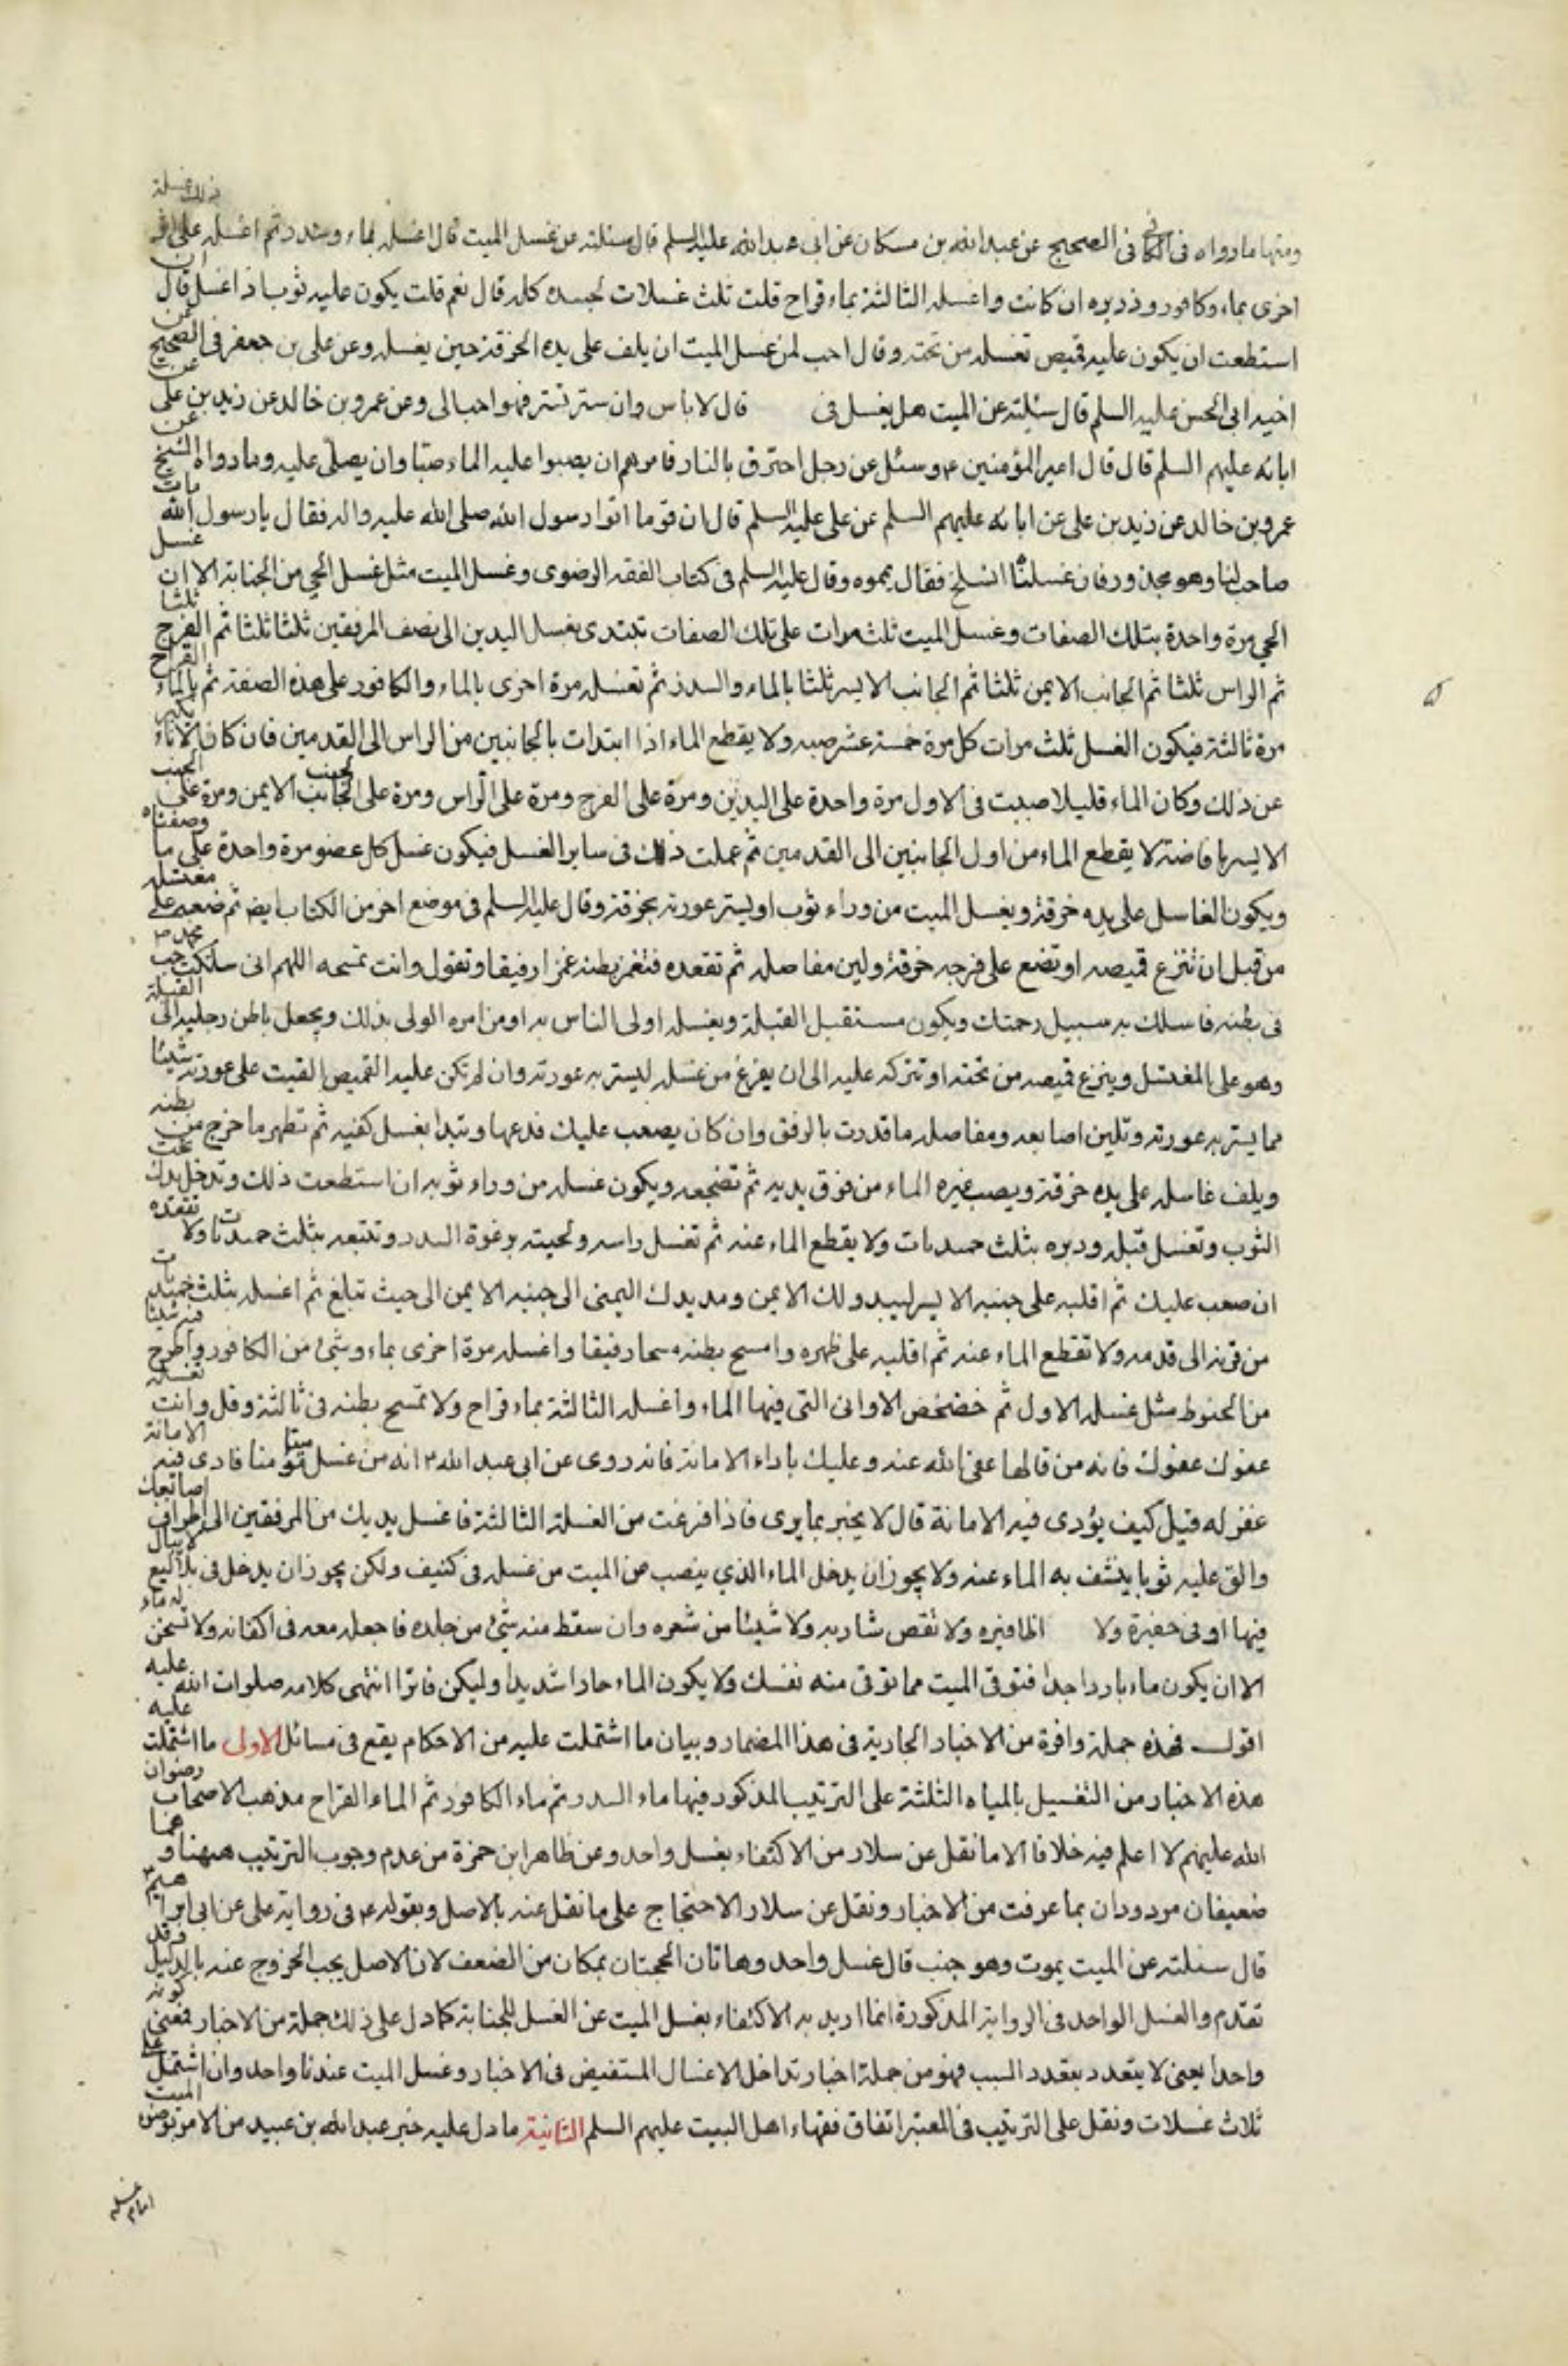 ومنها ما رواه فى الكافى فى الصحيح عن عبد الله بن مسكان عن ابى عبد الله عليه السلم قال سئلته عن غسل الميت قال اغسله بماء وسدر ثم اغسله على اثر ذلك غسلة
اخرى بماء وكافور وذريره ان كانت واغسله الثالثة بماء قراح قلت ثلث غسلات لجسده كله قال نعم قلت يكون عليه ثوب اذا اغسل قال ان
استطعت ان يكون عليه قميص تغسله من تحته وقال احب لمن غسل الميت ان يلف على يده الخرقة حين يغسله وعن على بن جعفر فى الصحيح عن
اخيه ابى الحسن عليه السلم قال سئلته عن الميت هل يغسل فى قال لا باس وان ستر بستر فهو احب الى وعن عمرو بن خالد عن زيد بن على عن
ابائه عليهم السلم قال قال امير المؤمنين ع وسئل عن رجل احترق بالنار فامرهم ان يصبوا عليه الماء صبا وان يصلى عليه وما رواه الشيخ عن
عمرو بن خالد عن زيد بن على عن ابائه عليهم السلم عن على عليه السلم قال ان قوما اتوا رسول الله صلى الله عليه واله فقال يا رسول الله مات
صاحب لنا وهو مجدور فان غسلناه انسلخ فقال يمموه وقال عليه السلم فى كتاب الفقه الرضوى وغسل الميت مثل غسل الحي من الجنابة الا ان غسل
الحي مرة واحدة بتلك الصفات وغسل الميت ثلث مرات على تلك الصفات تبتدى بغسل اليدين الى نصف المرفقين ثلثا ثلثا ثم الفرج ثلثا
ثم الراس ثلثا ثم الجانب الايمن ثلثا ثم الجانب الايسر ثلثا بالماء والسدر ثم تغسله مرة اخرى بالماء والكافور على هذه الصفة ثم بالماء القراح
مرة ثالثة فيكون الغسل ثلث مرات كل مرة خمسة عشر صبه ولا يقطع الماء اذا ابتدات بالجانبين من الراس الى القدمين فان كان الاناء يكبر
عن ذلك وكان الماء قليلا صببت فى الاول مرة واحدة على اليدين ومرة على الفرج ومرة على الراس ومرة على الجنب الايمن ومرة على الجنب
الايسر بافاضة لا يقطع الماء من اول الجانبين الى القدمين ثم عملت ذلك فى ساير الغسل فيكون غسل كل عضو مرة واحدة على ما وصفناه
ويكون الغاسل على يده خرقة ويغسل الميت من وراء ثوب او يستر عورته بخرقة وقال عليه السلم فى موضع اخر من الكتاب ايضا ثم ضعه على مغتسله
من قبل ان تنزع قميصه او تضع على فرجه خرقة ولين مفاصله ثم تقعده فتغمز بطنه غمزا رفيقا وتقول وانت تمسحه اللهم انى سلكت حب محمد ص
فى بطنه فاسلك به سبيل رحمتك ويكون مستقبل القبلة ويغسله اولى الناس به او من امره الولى بذلك ويجعل باطن رجليه الى القبلة
وهو على المغتسل وينزع قميصه من تحته او تتركه عليه الى ان يفرغ من غسله ليستر به عورته وان لم تكن عليه القميص القيت على عورته شيئا
مما يستر به عورته وتلين اصابعه ومفاصله ما قدرت بالرفق وان كان يصعب عليك فدعها وتبدا بغسل كفيه ثم تطهر ما خرج من بطنه
ويلف غاسله على يده خرقة ويصب غيره الماء من فوق يديه ثم تضجعه ويكون غسله من وراء ثوبه ان استطعت ذلك وتدخل يدك تحت
الثوب وتغسل قبله ودبره بثلث حميديات ولا يقطع الماء عنه ثم تغسل راسه ولحيته برغوة السدر وتتبعه بثلث حميديات ولا تقعده
ان صعب عليك ثم اقلبه على جنبه الايسر ليبدو لك الايمن ومد يدك اليمنى الى جنبه الايمن الى حيث تبلغ ثم اغسله بثلث حميديات
من قرنه الى قدمه ولا تقطع الماء عنه ثم اقلبه على ظهره وامسح بطنه مسحا رفيقا واغسله مرة اخرى بماء وشئ من الكافور واطرح فيه شيئا
من الحنوط مثل غسله الاول ثم خضخض الاوانى التى فيها الماء واغسله الثالثة بماء قراح ولا تمسح بطنه فى ثالثة وقل وانت تغسله
عفوك عفوك فانه من قالها عفى الله عنه وعليك باداء الامانة فانه روى عن ابى عبد الله ع انه من غسل ميتا مؤمنا فادى فيه الامانة
غفر له قيل كيف يؤدى فيه الامانة قال لا يخبر بما يرى فاذا فرغت من الغسلة الثالثة فاغسل يديك من المرفقين الى اطراف اصابعك
والق عليه ثوبا ينشف به الماء عنه ولا يجوز ان يدخل الماء الذي ينصب من الميت من غسله فى كنيف ولكن يجوز ان يدخل فى بلاليع لا يبال
فيها او فى حفيرة ولا اظافيره ولا تقص شاربه ولا شيئا من شعره وان سقط منه شئ من جلده فاجعله معه فى اكفانه ولا تسخن له ماء
الا ان يكون ماء باردا جدا فتوقى الميت مما توقى منه نفسك ولا يكون الماء حارا شديدا وليكن فاترا انتهى كلامه صلوات الله عليه
اقول فهذه جملة وافرة من الاخبار الجارية فى هذا المضمار وبيان ما اشتملت عليه من الاحكام يقع فى مسائل الاولى ما اشتملت عليه
هذه الاخبار من التغسيل بالمياه الثلثة على الترتيب المذكور فيها ماء السدر ثم ماء الكافور ثم الماء القراح مذهب الاصحاب رضوان
الله عليهم لا اعلم فيه خلافا الا ما نقل عن سلار من الاكتفاء بغسل واحد وعن ظاهر ابن حمزة من عدم وجوب الترتيب ههنا وهما
ضعيفان مردودان بما عرفت من الاخبار ونقل عن سلار الاحتجاج على ما نقل عنه بالاصل وبقوله ع فى رواية على عن ابى ابراهيم ع
قال سئلته عن الميت يموت وهو جنب قال غسل واحد وهاتان الحجتان بمكان من الضعف لان الاصل يجب الخروج عنه بالدليل وقد
تقدم والغسل الواحد فى الرواية المذكورة انما اريد به الاكتفاء بغسل الميت عن الغسل للجنابة كما دل على ذلك جملة من الاخبار فمعنى كونه
واحدا يعنى لا يتعدد بتعدد السبب فهو من جملة اخبار تداخل الاغسال المستفيض فى الاخبار وغسل الميت عندنا واحد وان اشتمل على
ثلاث غسلات ونقل على الترتيب فى المعتبر اتفاق فقهاء اهل البيت عليهم السلم الثانية ما دل عليه خبر عبد الله بن عبيد من الامر بوضوء الميت
امام غسله